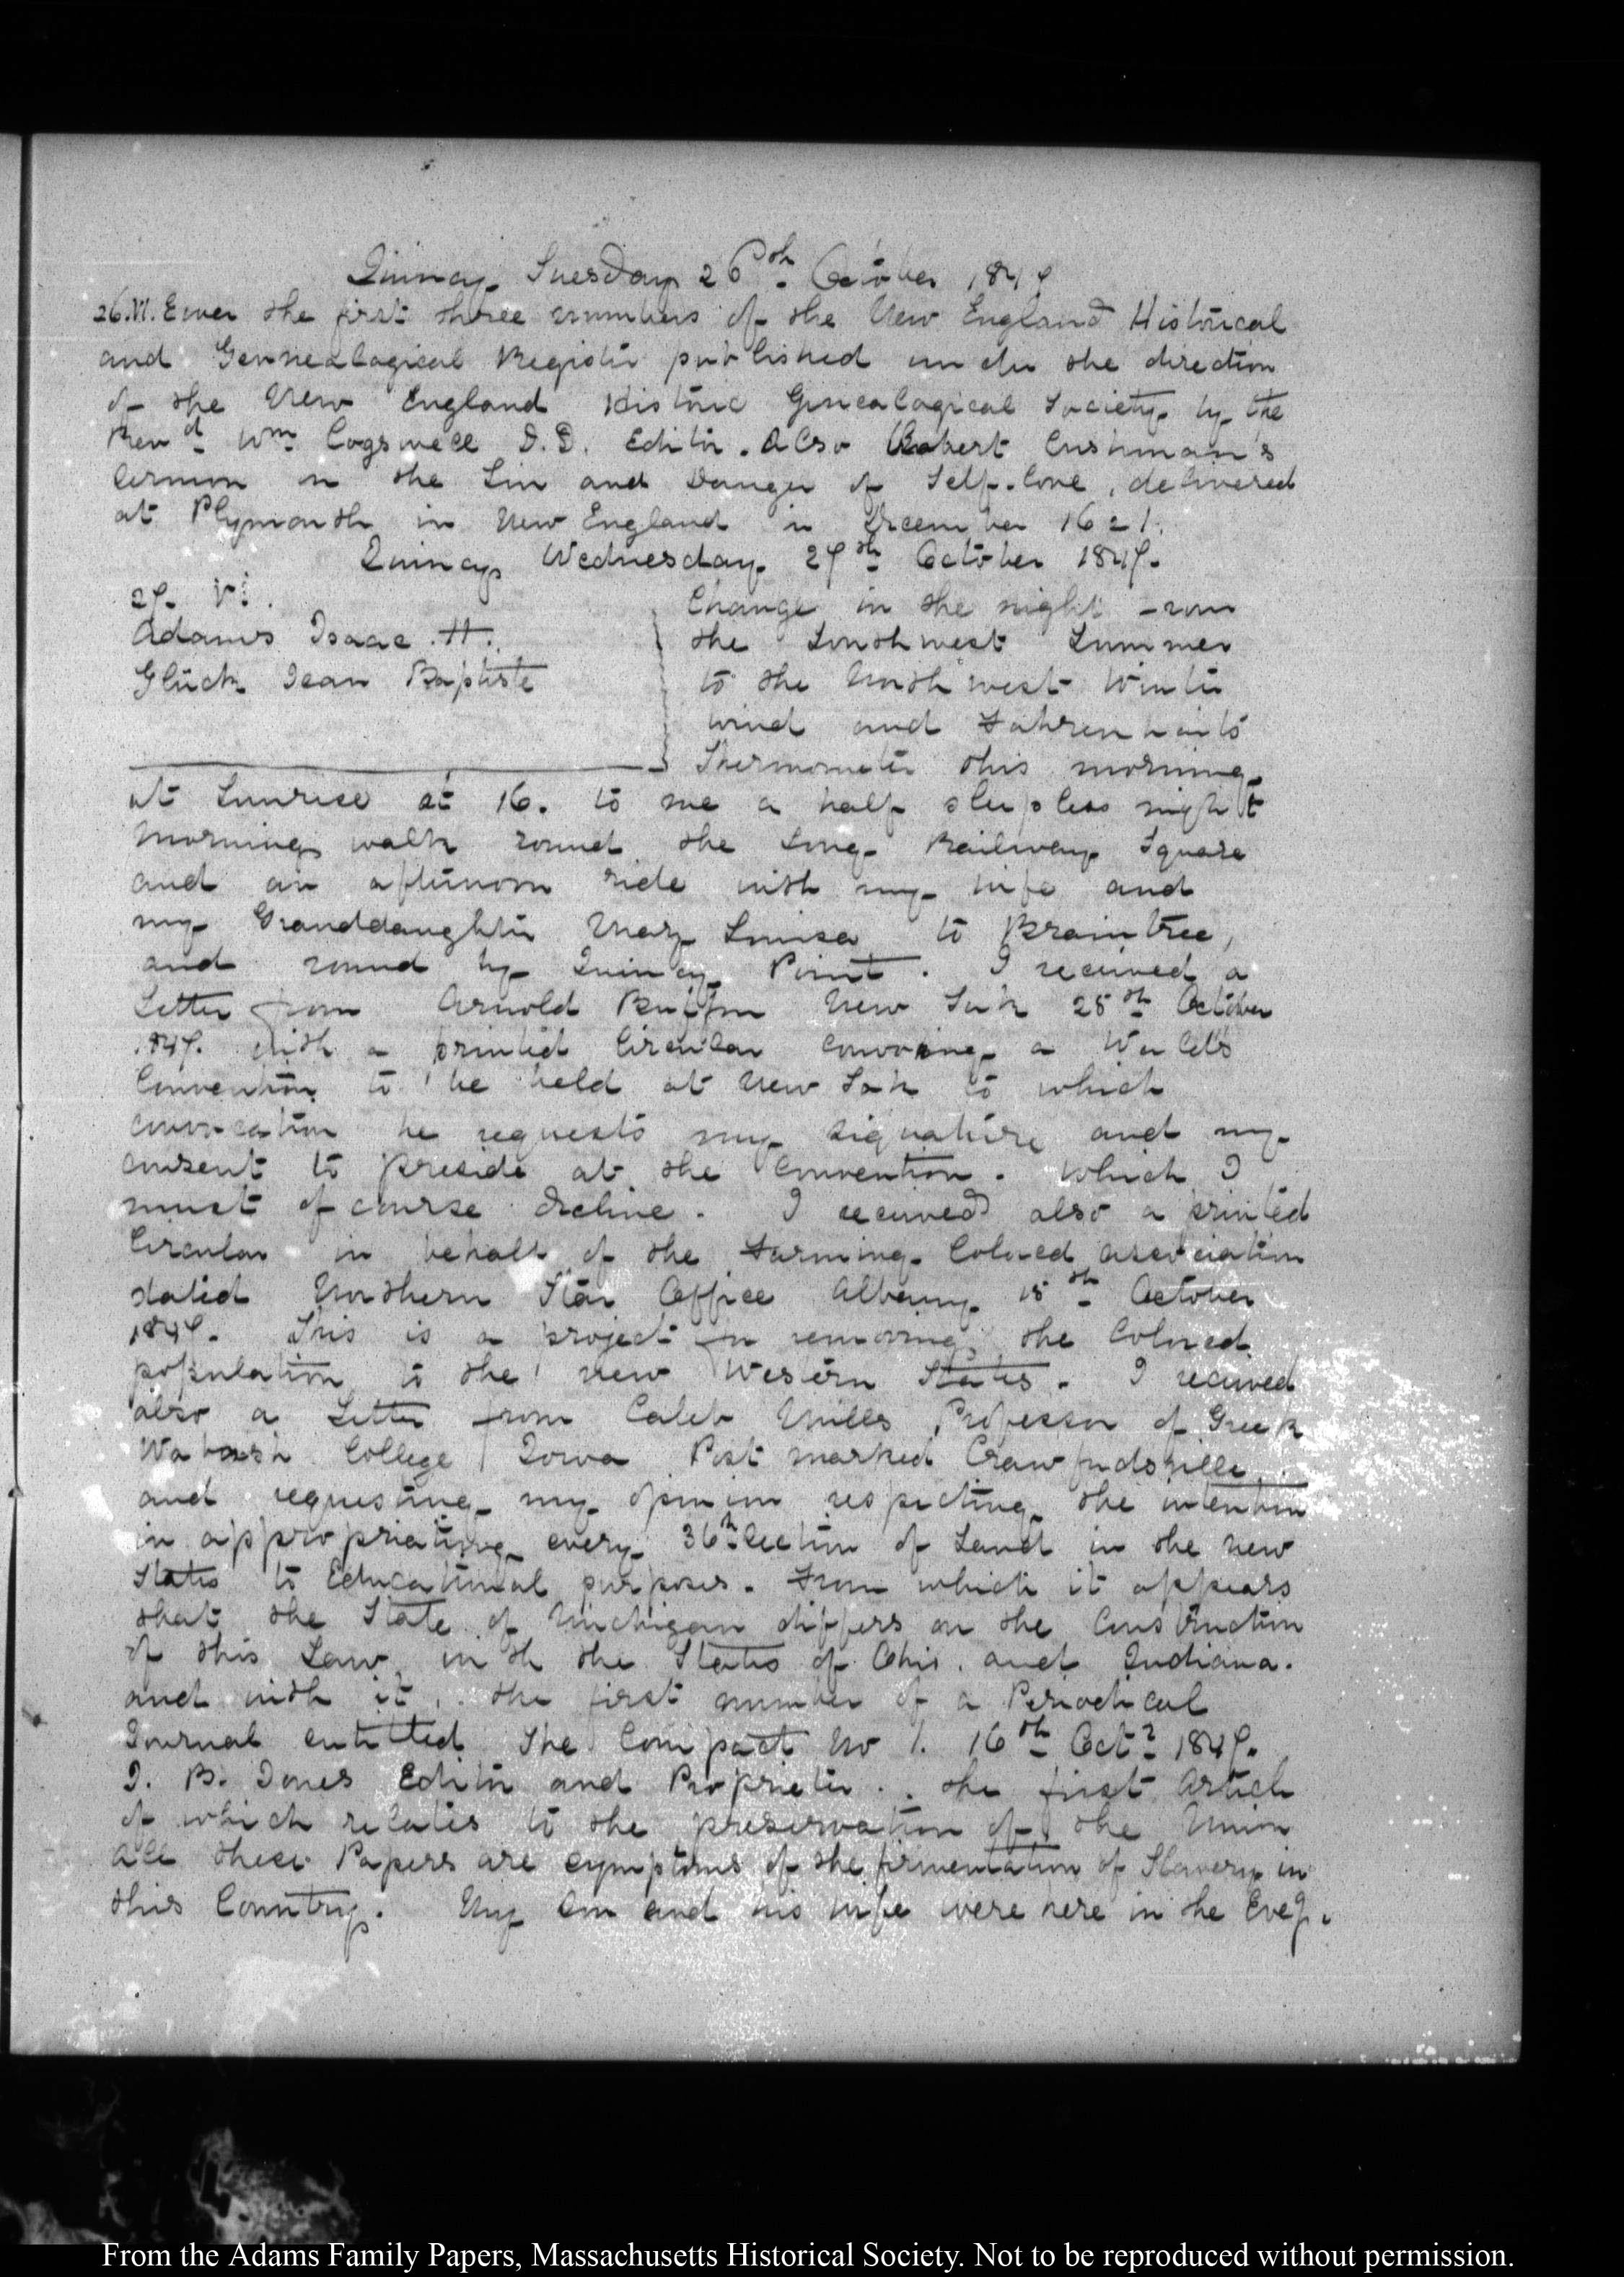 Quincy Tuesday 26th October 1847
26. VI. Ewer the first three numbers of the New England Historical
and Gennealogical Register published under the direction
of the New England Historic Genealogical Society by the
Revd Wm Cogswell D.D. Editor. Also Robert Cushman's
Sermon on the Sin and Danger of Self-love, delivered
at Plymouth in New England in December 1621.
Quincy Wednesday 27th October 1847.
27. VI.
Adams Isaac H.
Glück Jean Baptiste
Change in the night from
the Southwest Summer
to the Northwest Winter
wind and Fahrenheits
Thermometer this morning
at Sunrise at 16. to me a half sleepless night
Morning walk round the Long Railway Square
and an afternoon ride with my wife and
my Granddaughter Mary Louisa to Braintree,
and round by Quincy Point. I received a
Letter from Arnold Buffum New York 25th October
1847. with a printed Circular convoking a World's
Convention to be held at New York to which
convocation he requests my signature and my
consent to preside at the Convention. Which I
must of course decline. I received also a printed
Circular in behalf of the Farming Colored association
dated Northern Star Office Albany 15th October
1847. This is a project for removing the Colored
population to the new Western States. I received
also a Letter from Caleb Mills, Professor of Greek
Wabash College Iowa Post marked Crawfordsville
and requesting my opinion respecting the intention
in appropriating every 36th Section of Land in the new
States to Educational purposes. From which it appears
that the State of Michigan differs on the Construction
of this Law, with the States of Ohio. and Indiana.
and with it, the first number of a Periodical
Journal entitled The Compact No 1. 16th Octr 1847.
J. B. Jones Editor and Proprietor. the first Article
of which relates to the preservation of the Union
All these Papers are symptoms of the fermentation of Slavery in
this Country. My Son and his wife were here in the Eveg.
From the Adams Family Papers, Massachusetts Historical Society. Not to be reproduced without permission.